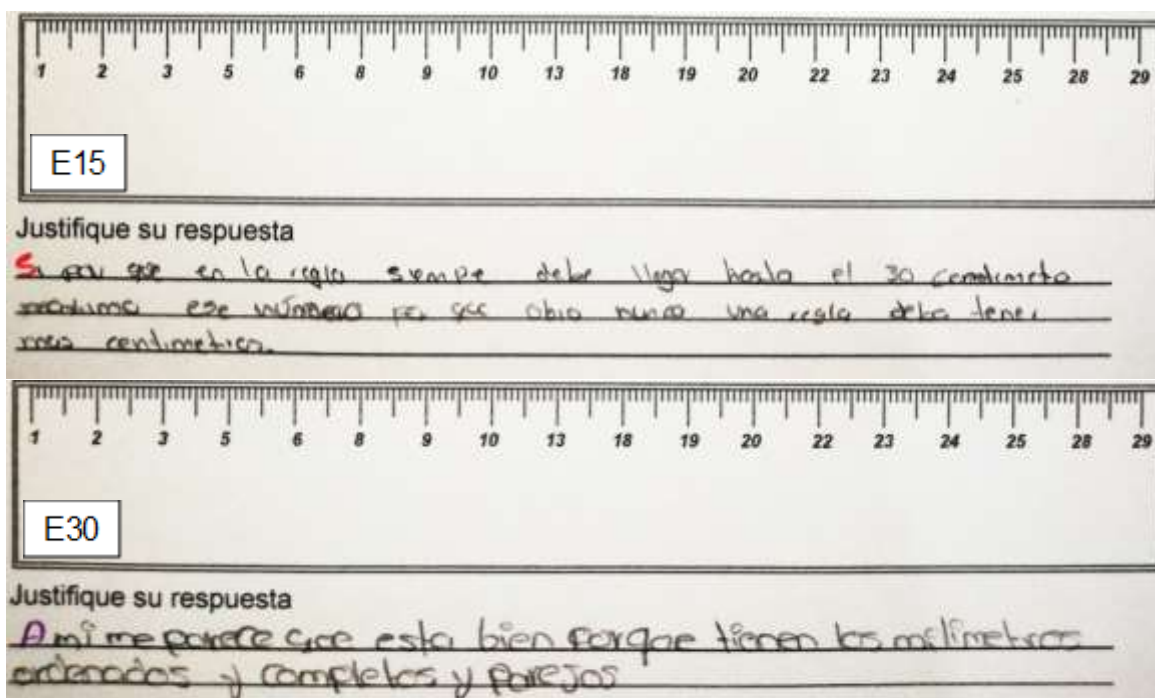 1 2 3 5 6 8 9 10 13 18 19 20 22 23 24 25 28 29
E15
Justifique su respuesta
Si por que en la regla siempe debe llegar hasta el 30 centimeto
ese número por que obio nunca una regla debe tener
mas centimetros.
1 2 3 5 6 8 9 10 13 18 19 20 22 23 24 25 28 29
E30
Justifique su respuesta
A mi me parece que esta bien porque tienen los milimetros
ordenados y completos y parejos